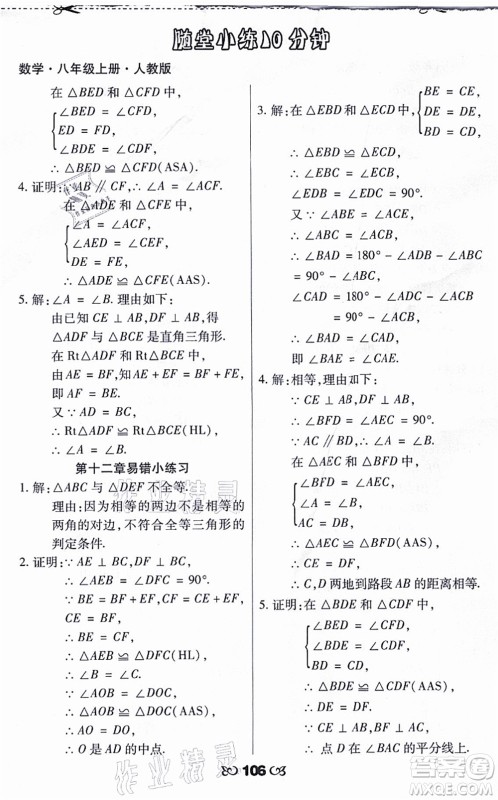 随堂小练10分钟
数学·八年级上册·人教版
在△BED和△CFD中,
∠BED = ∠CFD,
ED = FD,
∠BDE = ∠CDF,
∴△BED≌△CFD(ASA).
4. 证明:∵AB∥CF,∴∠A = ∠ACF.
在△ADE和△CFE中,
∠A = ∠ACF,
∠AED = ∠CEF,
DE = FE,
∴△ADE≌△CFE(AAS).
5. 解:∠A = ∠B. 理由如下:
由已知CE⊥AB,DF⊥AB,
得△ADF与△BCE是直角三角形.
在Rt△ADF和Rt△BCE中,
由AE = BF,知AE + EF = BF + EF,
即AF = BE.
又∵AD = BC,
∴Rt△ADF≌Rt△BCE(HL),
∴∠A = ∠B.
第十二章易错小练习
1. 解:△ABC与△DEF不全等.
理由:因为相等的两边不是相等的
两角的对边,不符合全等三角形的
判定条件.
2. 证明:∵AE⊥BC,DF⊥BC,
∴∠AEB = ∠DFC = 90°.
∵BE = BF + EF,CF = CE + EF,
∴BE = CF,
∴△AEB≌△DFC(HL),
∴∠B = ∠C.
∵∠AOB = ∠DOC,
∴△AOB≌△DOC(AAS),
∴AO = DO
∴O是AD的中点.
3. 解:在△EBD和△ECD中,
BE = CE,
DE = DE,
BD = CD,
∴△EBD≌△ECD,
∴∠EBC = ∠ECB,
∴∠EDB = ∠EDC = 90°.
又∵∠ABE = ∠ACE,
∴∠ABC = ∠ACB.
∵∠BAD = 180° − ∠ADB − ∠ABC
= 90° − ∠ABC,
∠CAD = 180° − ∠ADC − ∠ACB
= 90° − ∠ACB,
∴∠BAD = ∠CAD,
即∠BAE = ∠CAE.
4. 解:相等,理由如下:
∵CE⊥AB,DF⊥AB,
∴∠CEA = ∠DFB = 90°.
又∵AC∥BD,
∴∠A = ∠B.
又∵AC = BD,
∴△CEA≌△DFB(AAS),
∴CE = DF,
∴C,D两地到路段AB的距离相等.
5. 证明:在△BDE和△CDF中,
∠BDE = ∠CDF,
∠BED = ∠CFD,
BD = CD,
∴△BDE≌△CDF(AAS),
∴DE = DF.
∵DE⊥AB,DF⊥AC,
∴点D在∠BAC的平分线上.
106
作业精灵
作业精灵
答案圈
MXQE.COM